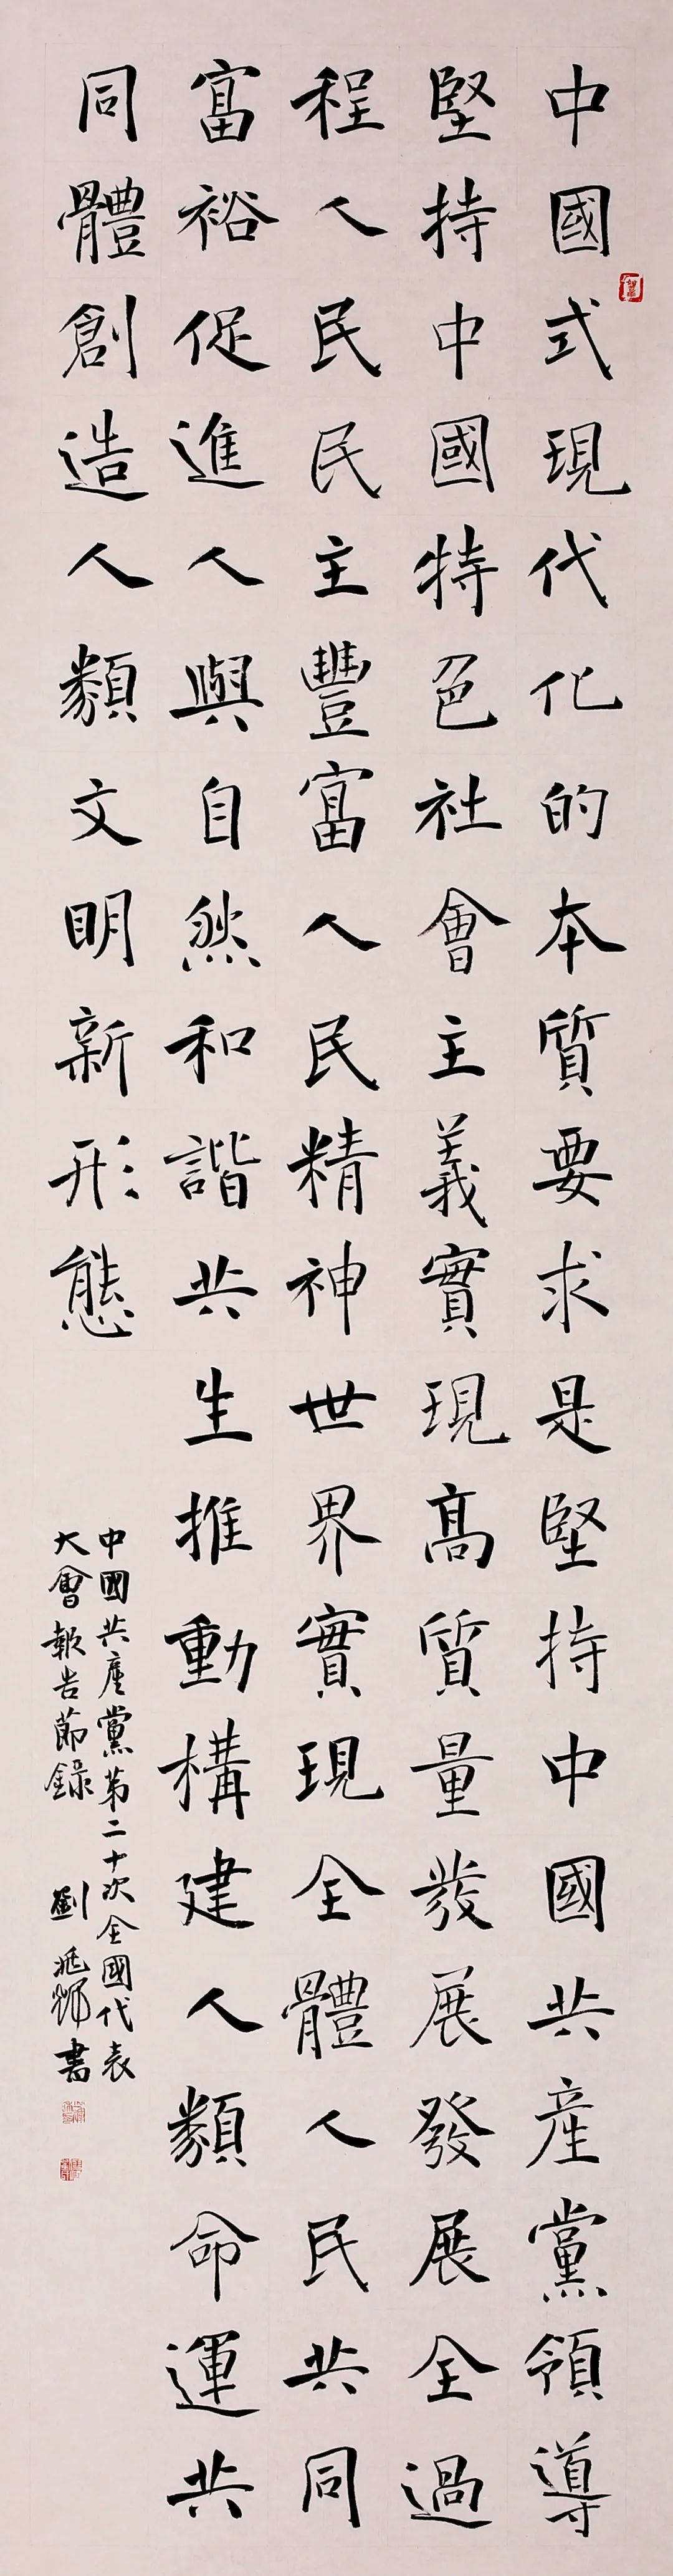 中國式現代化的本質要求是堅持中國共產黨領導
堅持中國特色社會主義實現高質量發展發展全過
程人民民主豐富人民精神世界實現全體人民共同
富裕促進人與自然和諧共生推動構建人類命運共
同體創造人類文明新形態
中國共產黨第二十次全國代表
大會報告節錄 劉兆輝書